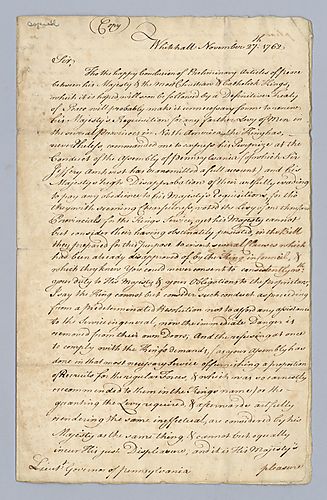 (Copy)
Whitehall November 27th. 1762.
Sir,
Tho the happy Conclusion of Preliminary Articles of Peace
between His Majesty & the most Christian & Catholick Kings,
which it is hoped will soon be followed by a Definitive Treaty
of Peace will probably make it unnecessary for me to renew
His Majesty's Requisition for any further Levy of Men in
the several Provinces in North America, the King has,
nevertheless commanded me to express his Surprize at the
Conduct of the Assembly of Pennsylvania (of which Sir
Jeffery Amherst has transmitted a full account) and his
Majesty's high Disapprobation of their artfully evading
to pay any obedience to his Majesty's Requisitions, for tho
they with seeming Cheerfulness voted the Levy of one thousand
Provincials for the King's Service, yet his Majesty cannot
but consider their having obstinately persisted, in the Bill
they prepared for this purpose to insert several Clauses which
had been already disapproved of by the King in Council, &
which they knew You could never consent to consistently with
your Duty to His Majesty & your Obligations to the Proprietors,
I say the King cannot but consider such conduct as proceeding
from a predetermined Resolution not to afford any assistance
to the Service in general, now the immediate Danger is
removed from their own Doors, And the refusing at once
to comply with the King's Demands, (as your Assembly has
done in that most necessary Service of furnishing a proportion
of Recruits for the regular Forces, & which was so earnestly
recommended to them in the King's name) or the
granting the Levy required, & afterwards artfully
rendering the same ineffectual, are considered by his
Majesty as the same thing & cannot but equally
incur His just Displeasure, and it is His Majesty's
Lieut. Governor of Pennsylvania
pleasure